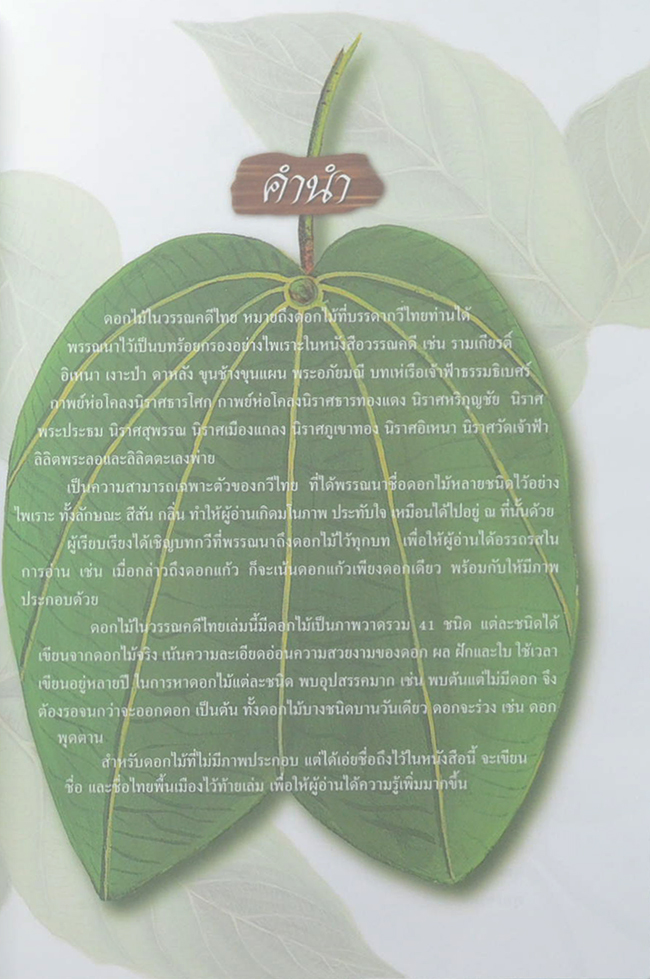 คำนำ
ดอกไม้ในวรรณคดีไทย หมายถึงดอกไม้ที่บรรดากวีไทยท่านได้
พรรณนาไว้เป็นบทร้อยกรองอย่างไพเราะในหนังสือวรรณคดี เช่น รามเกียรติ์
อิเหนา เงาะป่า ดาหลัง ขุนช้างขุนแผน พระอภัยมณี บทเห่เรือเจ้าฟ้าธรรมธิเบศร์
กาพย์ห่อโคลงนิราศธารโศก กาพย์ห่อโคลงนิราศธารทองแดง นิราศหริภุญชัย นิราศ
พระประธม นิราศสุพรรณ นิราศเมืองแกลง นิราศภูเขาทอง นิราศอิเหนา นิราศวัดเจ้าฟ้า
ลิลิตพระลอและลิลิตตะเลงพ่าย
เป็นความสามารถเฉพาะตัวของกวีไทย ที่ได้พรรณนาชื่อดอกไม้หลายชนิดไว้อย่าง
ไพเราะ ทั้งลักษณะ สีสัน กลิ่น ทำให้ผู้อ่านเกิดมโนภาพ ประทับใจ เหมือนได้ไปอยู่ ณ ที่นั้นด้วย
ผู้เรียบเรียงได้เชิญบทกวีที่พรรณนาถึงดอกไม้ไว้ทุกบท เพื่อให้ผู้อ่านได้อรรถรสใน
การอ่าน เช่น เมื่อกล่าวถึงดอกแก้ว ก็จะเน้นดอกแก้วเพียงดอกเดียว พร้อมกับให้มีภาพ
ประกอบด้วย
ดอกไม้ในวรรณคดีไทยเล่มนี้มีดอกไม้เป็นภาพวาดรวม 41 ชนิด แต่ละชนิดได้
เขียนจากดอกไม้จริง เน้นความละเอียดอ่อนความสวยงามของดอก ผล ฝักและใบ ใช้เวลา
เขียนอยู่หลายปี ในการหาดอกไม้แต่ละชนิด พบอุปสรรคมาก เช่น พบต้นแต่ไม่มีดอก จึง
ต้องรอจนกว่าจะออกดอก เป็นต้น ทั้งดอกไม้บางชนิดบานวันเดียว ดอกจะร่วง เช่น ดอก
พุดตาน
สำหรับดอกไม้ที่ไม่มีภาพประกอบ แต่ได้เอ่ยชื่อถึงไว้ในหนังสือนี้ จะเขียน
ชื่อ และชื่อไทยพื้นเมืองไว้ท้ายเล่ม เพื่อให้ผู้อ่านได้ความรู้เพิ่มมากขึ้น